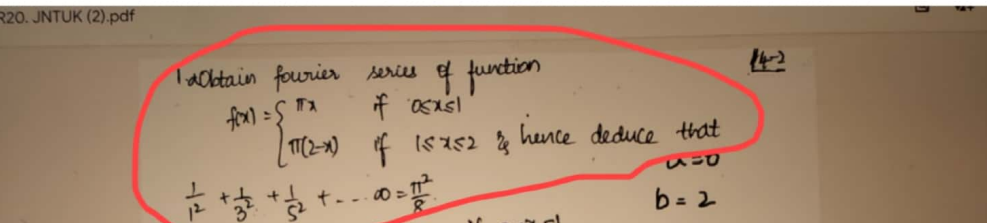 R20. JNTUK (2).pdf
1a) Obtain fourier series of function
14-2
f(x) = { πx if 0≤x≤1
π(2-x) if 1≤x≤2 & hence deduce that
a=0
1/1² + 1/3² + 1/5² + --- ∞ = π²/8
b = 2